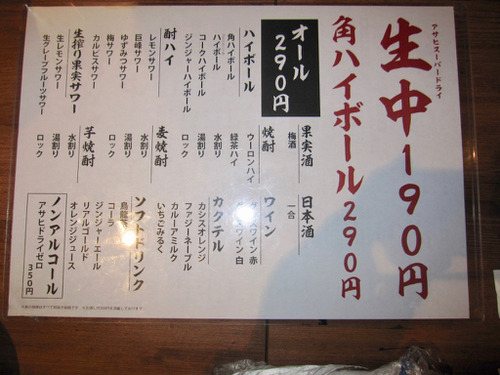 アサヒスーパードライ
生中190円
角ハイボール290円
オール
290円
果実酒
梅酒
日本酒
一合
ハイボール
角ハイボール
ハイボール
コークハイボール
ジンジャーハイボール
焼酎
ウーロンハイ
緑茶ハイ
水割り
湯割り
ロック
ワイン
ワイン 赤
ワイン 白
酎ハイ
レモンサワー
巨峰サワー
ゆずみつサワー
梅サワー
カルピスサワー
麦焼酎
水割り
湯割り
ロック
カクテル
カシスオレンジ
ファジーネーブル
カルーアミルク
いちごみるく
生搾り果実サワー
生レモンサワー
生グレープフルーツサワー
芋焼酎
水割り
湯割り
ロック
ソフトドリンク
烏龍茶
コーラ
ジンジャーエール
リアルゴールド
オレンジジュース
ノンアルコール
アサヒドライゼロ
350円